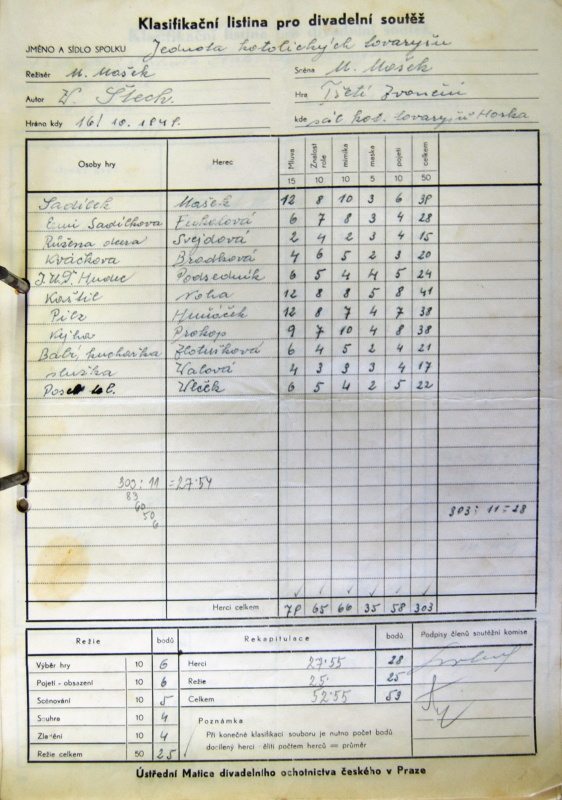 Klasifikační listina pro divadelní soutěž
JMÉNO A SÍDLO SPOLKU Jednota katolických tovaryšů
Režisér M. Mašek Scéna M. Mašek
Autor V. Štech. Hra Třetí zvonění
Hráno kdy 16/10. 1949. kde sál kat. tovaryšů Horka
Osoby hry Herec Mluva 15 Znalost role 10 mimika 10 maska 5 pojetí 10 celkem 50
Sadílek Mašek 12 8 10 3 6 39
Emi Sadílkova 6 7 8 3 4 28
Růžena dcera Svejdová 2 4 2 3 4 15
Kváčkova Brodková 4 6 5 2 3 20
J.U.D. Hudec Podsedník 6 5 4 4 5 24
Kaštil Noha 12 8 8 5 8 41
Pilz 12 8 7 4 7 38
Kejha Prokop 9 7 10 4 8 38
Babi, kuchařka Zlotušková 6 4 5 2 4 21
služka Valová 4 3 3 3 4 17
Posel Vlček 6 5 4 2 5 22
303 : 11 = 27·54
83
60
50
6
303 : 11 = 28
Herci celkem 79 65 66 35 58 303
Režie bodů Rekapitulace bodů Podpisy členů soutěžní komise
Výběr hry 10 6 Herci 27·55 28
Pojetí - obsazení 10 6 Režie 25· 25
Scénování 10 5 Celkem 52·55 53
Souhra 10 4 Poznámka
Ztělění 10 4 Při konečné klasifikaci souboru je nutno počet bodů
Režie celkem 50 25 docílený herci děliti počtem herců = průměr
Ústřední Matice divadelního ochotnictva českého v Praze